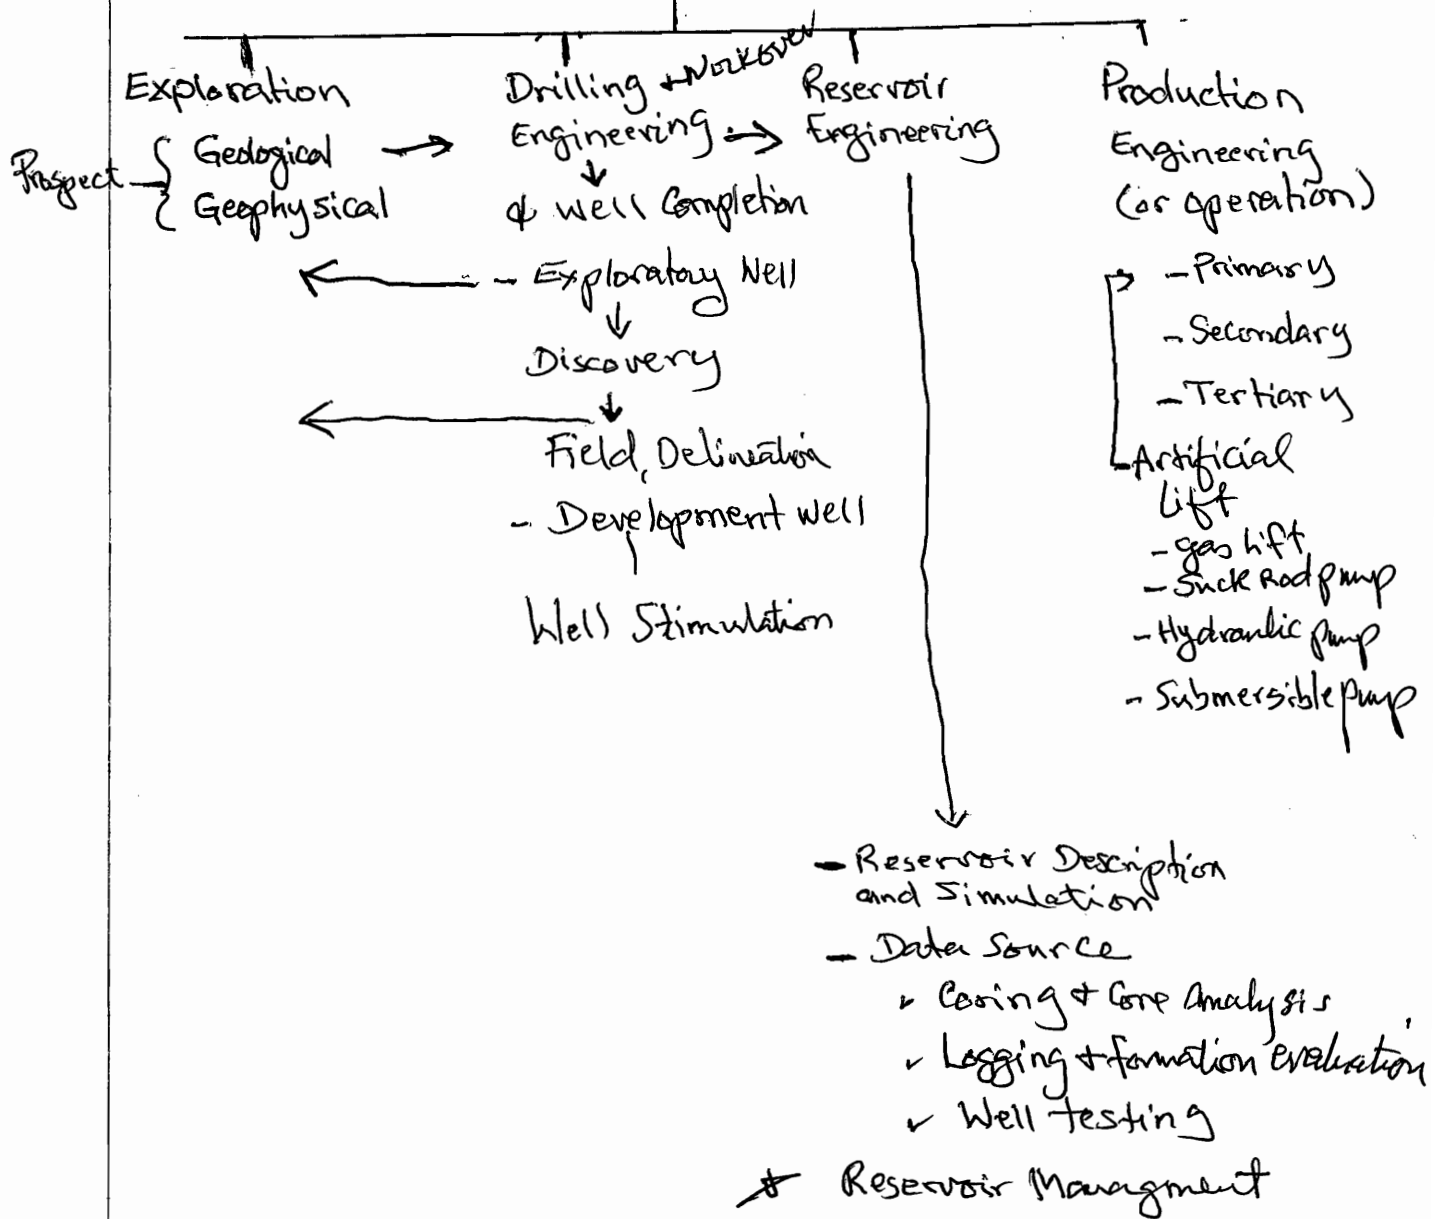 Exploration
Prospect
Geological
Geophysical
Drilling + Workover
Engineering
& Well Completion
- Exploratory Well
Discovery
Field, Delineation
- Development well
Well Stimulation
Reservoir
Engineering
- Reservoir Description
and Simulation
- Data Source
✓ Coring + Core Analysis
✓ Logging + formation evaluation
✓ Well testing
* Reservoir Managment
Production
Engineering
(or operation)
- Primary
- Secondary
- Tertiary
- Artificial
Lift
- gas lift
- Suck Rod pump
- Hydraulic pump
- Submersible pump